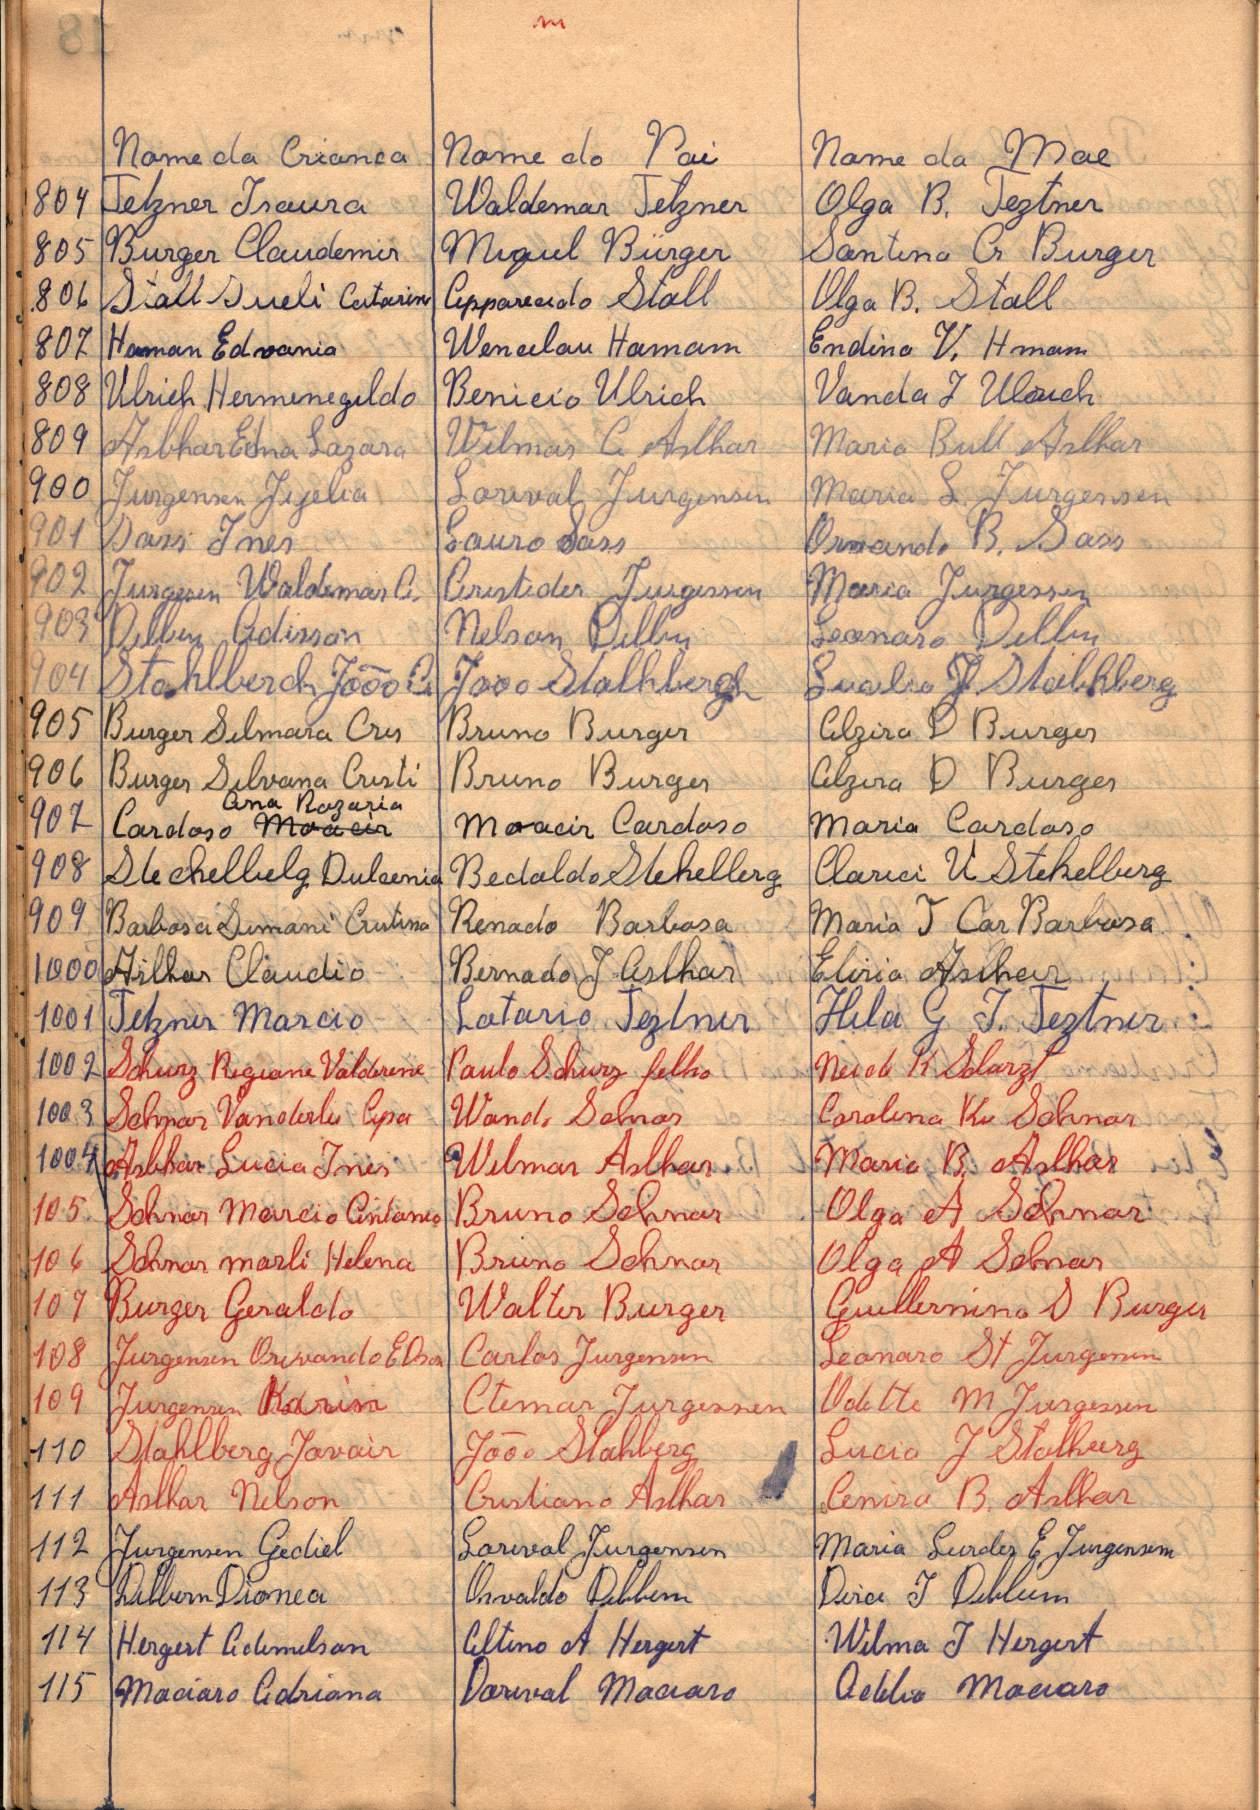 Nome da Crianca Nome do Pai Nome da Mae
804 Tetzner Isaura Waldemar Tetzner Olga B. Teztner
805 Burger Claudemir Miguel Bürger Santina Cr Burger
806 Stall Sueli Catarina Apparecido Stall Olga B. Stall
807 Haman Edvania Wencelau Hamam Endina V. Hmam
808 Ulrich Hermenegildo Benicio Ulrich Vanda J Ulrich
809 Aslhar Edna Lazara Wilmar C Aslhar Maria Bull Aslhar
900 Jurgensen Lorival Jurgensen Maria L. Jurgensen
901 Sass Ines Lauro Sass B. Sass
902 Jurgesen Waldemar A. Aristides Jurgessen Maria Jurgessen
903 Adisson Nelson Leonaro
904 Stahlberch João A João Stalhbergh J. Stahlhberg
905 Burger Silmara Cris Bruno Burger Alzira D Burger
906 Burger Silvana Cristi Bruno Burger Alzira D Burger
Ana Rozaria
907 Cardoso Moacir Moacir Cardoso Maria Cardoso
908 Stechelbelg Dulcenia Bedaldo Stehelberg Clarici U Stehelberg
909 Barbosa Simani Cristina Renado Barbosa Maria T Car Barbosa
1000 Aslhar Claudio Bernado J Aslhar Eliria Aslhar
1001 Tetzner Marcio Lotario Teztner Hilda G T. Teztner
1002 Schurz Regiane Valderene Paulo Schurz filho
1003 Schnar Vanderlei Apa Wando Schnar Carolina Ku Schnar
1004 Aslhar Lucia Ines Wilmar Aslhar Maria B. Aslhar
105 Schnar Marcio Antonio Bruno Schnar Olga A Schnar
106 Schnar marli Helena Bruno Schnar Olga A Schnar
107 Burger Geraldo Walter Burger Guilhermina S Burger
108 Jurgensen Carlos Jurgensen Leonaro St Jurgensen
109 Jurgensen Karin Jurgenssen Odette M Jurgessen
110 Stahlberg Jovair João Stahberg Lucia J Stalhberg
111 Aslhar Nelson Cristiano Aslhar Cenira B. Aslhar
112 Jurgensen Gediel Lorival Jurgensen Maria Lurdes E Jurgensem
113 Dilbern Dionea Osvaldo Debbem Dirce T
114 Hergert Ademilson Altino A Hergert Wilma J Hergert
115 Maciaro Adriana Dorival Maciaro Maciaro